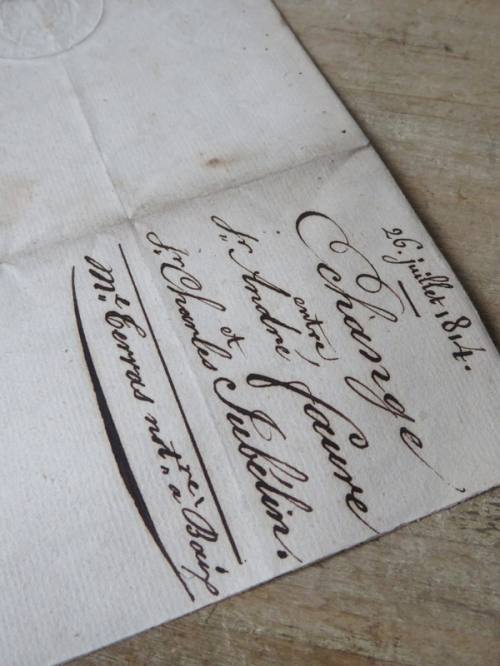 26. juillet 1814.
Echange
entre
Sr. André Faure
et
Sr. Charles Jubelin.
Me. Terras notre. a Baix